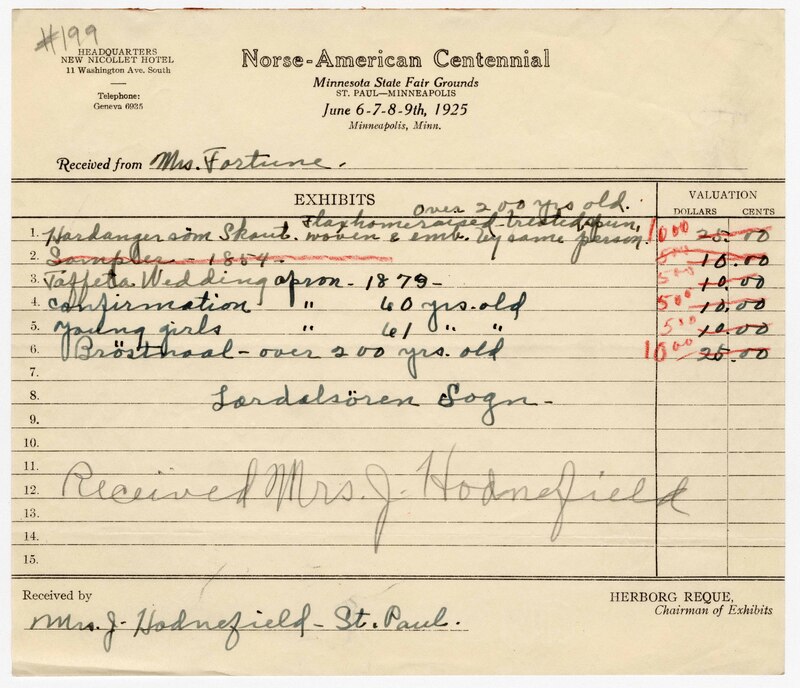 #199
HEADQUARTERS
NEW NICOLLET HOTEL
11 Washington Ave. South
Telephone:
Geneva 6935
Norse-American Centennial
Minnesota State Fair Grounds
ST. PAUL—MINNEAPOLIS
June 6-7-8-9th, 1925
Minneapolis, Minn.
Received from Mrs. Fortune.
EXHIBITS
VALUATION
DOLLARS CENTS
over 200 yrs old.
Flax home raised - treated spun,
1. Hardangersöm Skaut. woven & emb. by same person. 10 00 25.00
2. Sampler - 1854. 5 00 10.00
3. Taffeta Wedding apron - 1879 - 5 00 10.00
4. Confirmation " 60 yrs. old 5 00 10.00
5. Young girls " 61 " " 5 00 10.00
6. Bröstnaal - over 200 yrs. old 10 00 25.00
7.
8. Lærdalsören Sogn -
9.
10.
11.
12. Received Mrs. J. Hodnefield
13.
14.
15.
Received by
Mrs. J. Hodnefield - St. Paul.
HERBORG REQUE,
Chairman of Exhibits